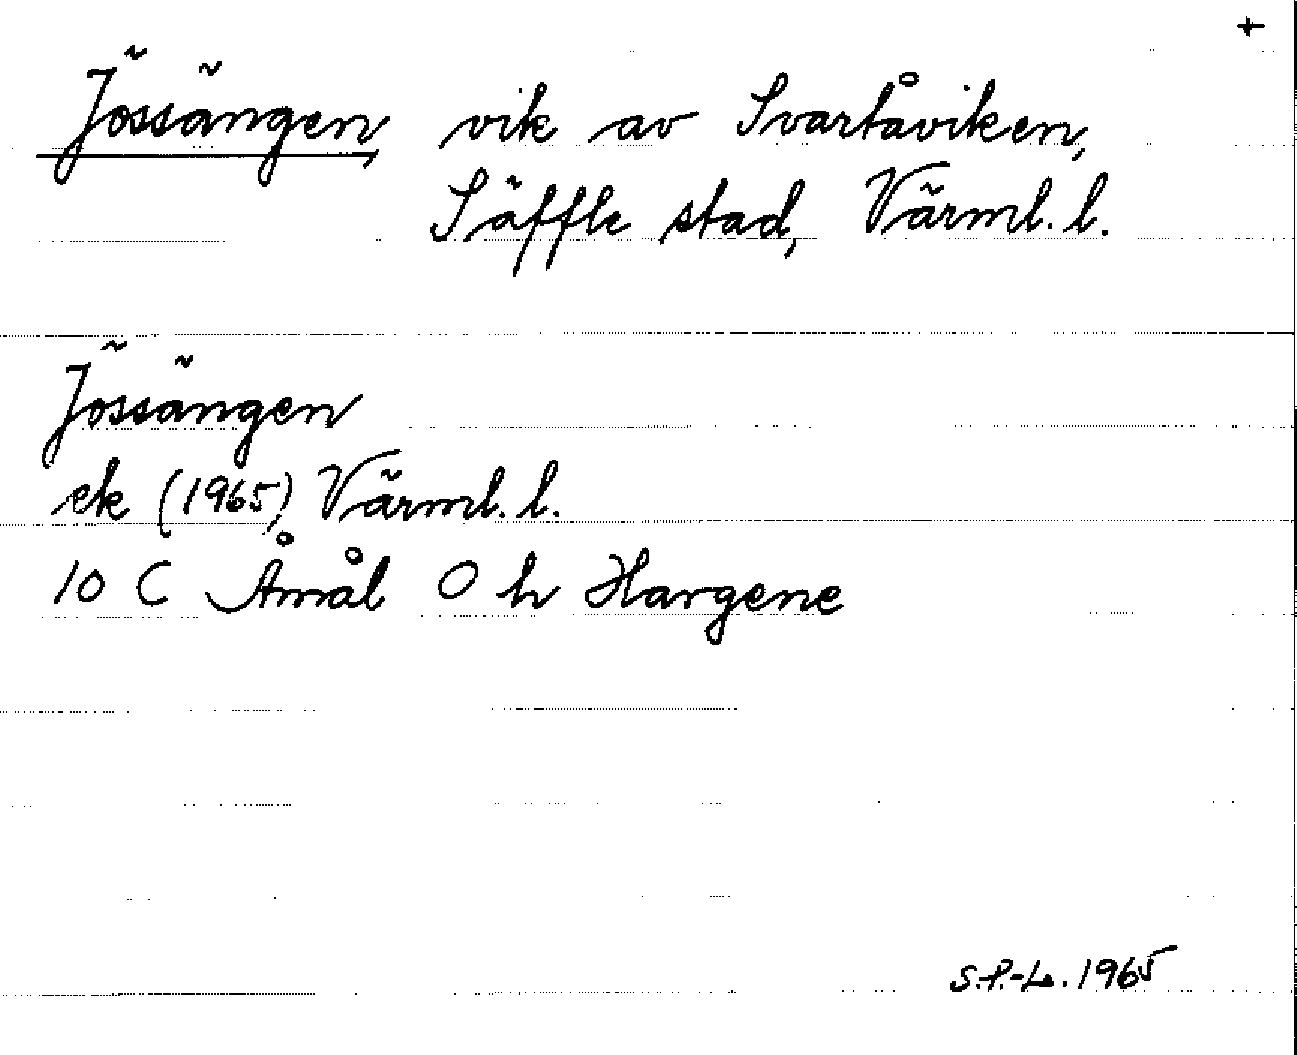 +
Jössängen, vik av Svartåviken,
Säffle stad, Värml. l.
Jössängen
ek (1965) Värml. l.
10 C Åmål O h Hargene
S.P.-L. 1965